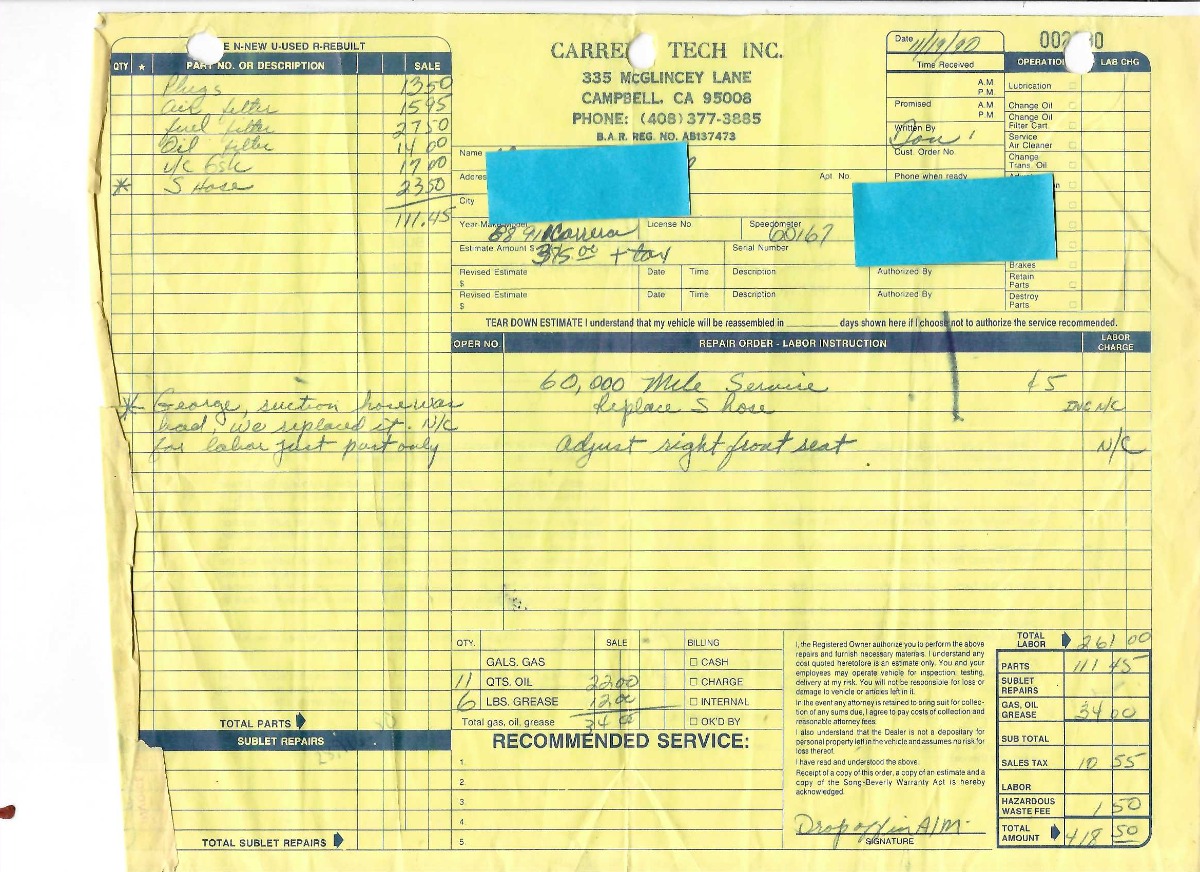 E N-NEW U-USED R-REBUILT
QTY ★ PART NO. OR DESCRIPTION SALE
Plugs 13 50
air filter 15 95
fuel filter 27 50
Oil filter 14 00
v/c Gsk 17 00
* S Hose 23 50
111.45
* George, suction hose was
bad, we replaced it. N/C
for labor just part only
TOTAL PARTS
SUBLET REPAIRS
TOTAL SUBLET REPAIRS
CARRE TECH INC.
335 McGLINCEY LANE
CAMPBELL, CA 95008
PHONE: (408) 377-3885
B.A.R. REG. NO. AB137473
Name
Addres
Apt. No.
City
Year-Make-Model 88 911 Carrera License No Speedometer 60167
Estimate Amount $ 375.00 + tax Serial Number
Revised Estimate $ Date Time Description Authorized By
Revised Estimate $ Date Time Description Authorized By
Date 11/19/90
Time Received
A.M
P.M.
Promised A.M
P.M.
Written By Don
Cust. Order No.
Phone when ready
OPERATION LAB CHG
Lubrication
Change Oil
Change Oil Filter Cart.
Service Air Cleaner
Change Trans. Oil
Brakes
Retain Parts
Destroy Parts
TEAR DOWN ESTIMATE I understand that my vehicle will be reassembled in ______ days shown here if I choose not to authorize the service recommended.
OPER NO. REPAIR ORDER - LABOR INSTRUCTION LABOR CHARGE
60,000 Mile Service
Replace S hose INC N/C
adjust right front seat N/C
QTY. SALE BILLING
GALS. GAS CASH
11 QTS. OIL 22.00 CHARGE
6 LBS. GREASE 12.00 INTERNAL
Total gas, oil, grease 34 00 OK'D BY
RECOMMENDED SERVICE:
1.
2.
3.
4.
5.
I, the Registered Owner authorize you to perform the above
repairs and furnish necessary materials. I understand any
cost quoted heretofore is an estimate only. You and your
employees may operate vehicle for inspection, testing,
delivery at my risk. You will not be responsible for loss or
damage to vehicle or articles left in it.
In the event any attorney is retained to bring suit for collection
of any sums due, I agree to pay costs of collection and
reasonable attorney fees.
I also understand that the Dealer is not a depositary for
personal property left in the vehicle and assumes no risk for
loss thereof.
I have read and understood the above.
Receipt of a copy of this order, a copy of an estimate and a
copy of the Song-Beverly Warranty Act is hereby
acknowledged.
Drop off in A/M.
SIGNATURE
TOTAL LABOR 261 00
PARTS 111 45
SUBLET REPAIRS
GAS, OIL GREASE 34 00
SUB TOTAL
SALES TAX 10 55
LABOR
HAZARDOUS WASTE FEE 1 50
TOTAL AMOUNT 418 50